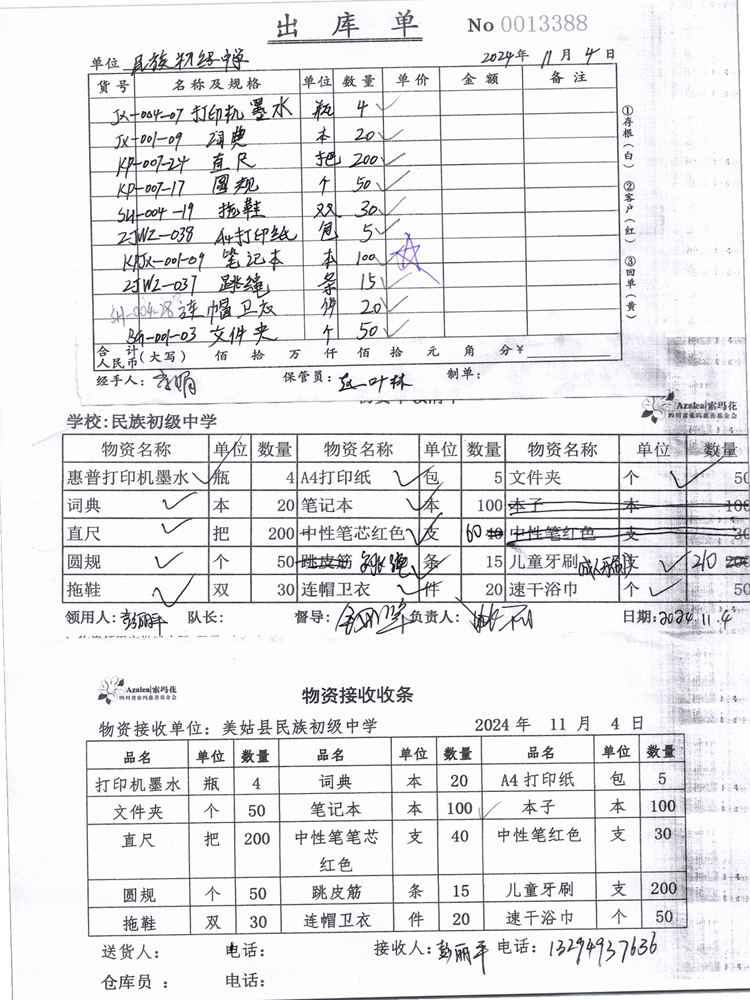 出库单 No 0013388
单位 民族初级中学 2024年 11月 4日
货号 名称及规格 单位 数量 单价 金额 备注
JX-004-07 打印机墨水 瓶 4
JX-001-09 词典 本 20
KP-007-24 直尺 把 200
KP-007-17 圆规 个 50
SH-004-19 拖鞋 双 30
ZJWZ-038 A4打印纸 包 5
KPJX-001-09 笔记本 本 100
ZJWZ-037 跳绳 条 15
SH-004-18 连帽卫衣 件 20
BG-001-03 文件夹 个 50
合计人民币(大写) 佰 拾 万 仟 佰 拾 元 角 分¥
经手人: 保管员: 制单:
①存根(白) ②客户(红) ③回单(黄)
Azalea|索玛花
四川省索玛慈善基金会
学校:民族初级中学
物资名称 单位 数量 物资名称 单位 数量 物资名称 单位 数量
惠普打印机墨水 瓶 4 A4打印纸 包 5 文件夹 个 50
词典 本 20 笔记本 本 100 本子 本 100
直尺 把 200 中性笔芯红色 支 60 40 中性笔红色 支 30
圆规 个 50 跳皮筋 跳绳 条 15 儿童牙刷 成人牙刷 支 210 200
拖鞋 双 30 连帽卫衣 件 20 速干浴巾 个 50
领用人: 彭丽平 队长: 督导: 负责人: 日期: 2024.11.4
Azalea|索玛花
四川省索玛慈善基金会
物资接收收条
物资接收单位: 美姑县民族初级中学 2024 年 11 月 4 日
品名 单位 数量 品名 单位 数量 品名 单位 数量
打印机墨水 瓶 4 词典 本 20 A4打印纸 包 5
文件夹 个 50 笔记本 本 100 本子 本 100
直尺 把 200 中性笔笔芯红色 支 40 中性笔红色 支 30
圆规 个 50 跳皮筋 条 15 儿童牙刷 支 200
拖鞋 双 30 连帽卫衣 件 20 速干浴巾 个 50
送货人: 电话: 接收人: 彭丽平 电话: 13294937636
仓库员: 电话: